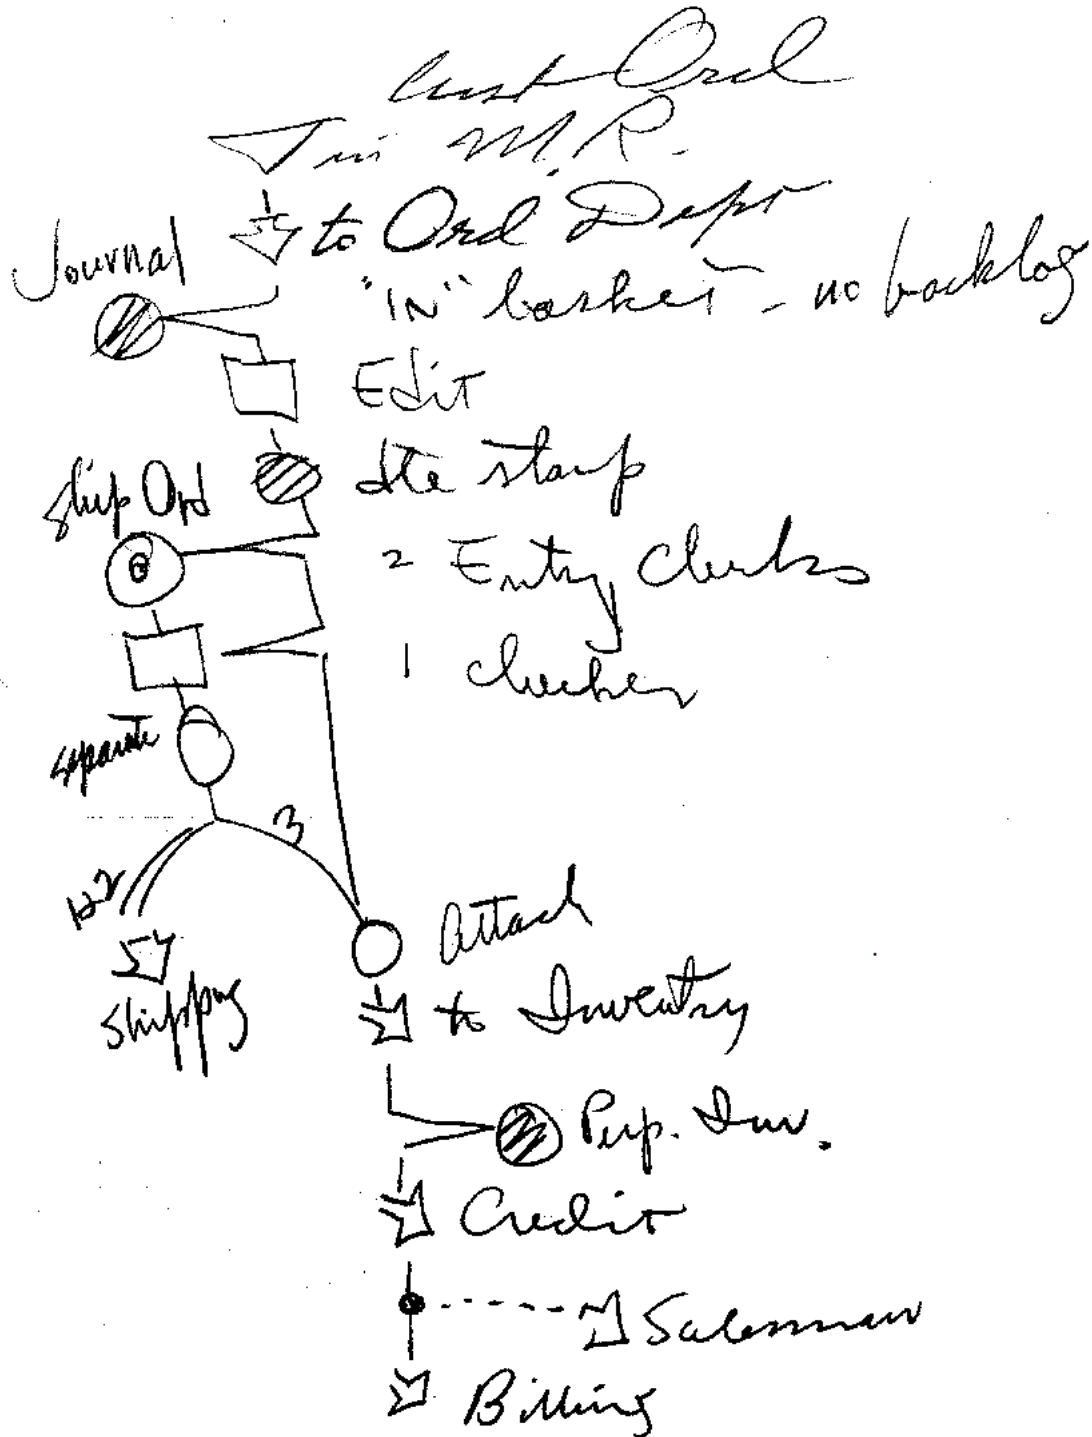 Cust Ord
in M.R.
to Ord Dept
Journal
"IN" basket - no backlog
Edit
Ship Ord
dte stamp
2 Entry Clerks
1 checker
separate
3
1&2
Attach
Shipping
to Inventry
Perp. Inv.
Credit
Salesman
Billing